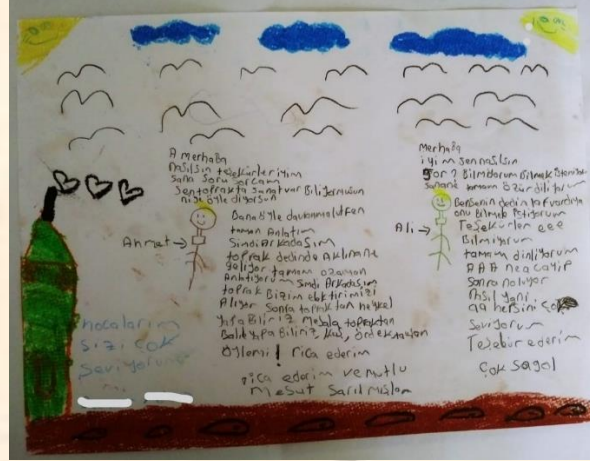 A merhaba
nasılsın teşekürler iyim
sana soru sorcam
Sen toprakta sanat var Biliyormusun
niye öyle diyorsun
Bana öyle davranma lütfen
taman Anlatim
Şindi Arkadaşım
toprak dedinde Aklınane
Geliyor tamam ozaman
Anlatıyorum Şindi Arkadaşım
toprak Bizim elektirimizi
Alıyor Sonra topraktan heykel
yapaBiliriz Mesala topraktan
Balık yapa Biliriz, Kuş, ördek
Öylemi! rica ederim
rica ederim ve mutlu
mesut
Ahmet
Merhaba
iyim sen nasılsın
Bilmiyorum Bilmek istemiyorum
tamam özür diliyorum
onu Bilmek istiyorum
Teşekürler eee
Bilmiyorum
tamam dinliyorum
AAA ne acayip
sonra noluyor
nasıl yani
Seviyorum
Teşekür ederim
Çok sagol
Ali
hocalarim
sizi çok
Seviyorum